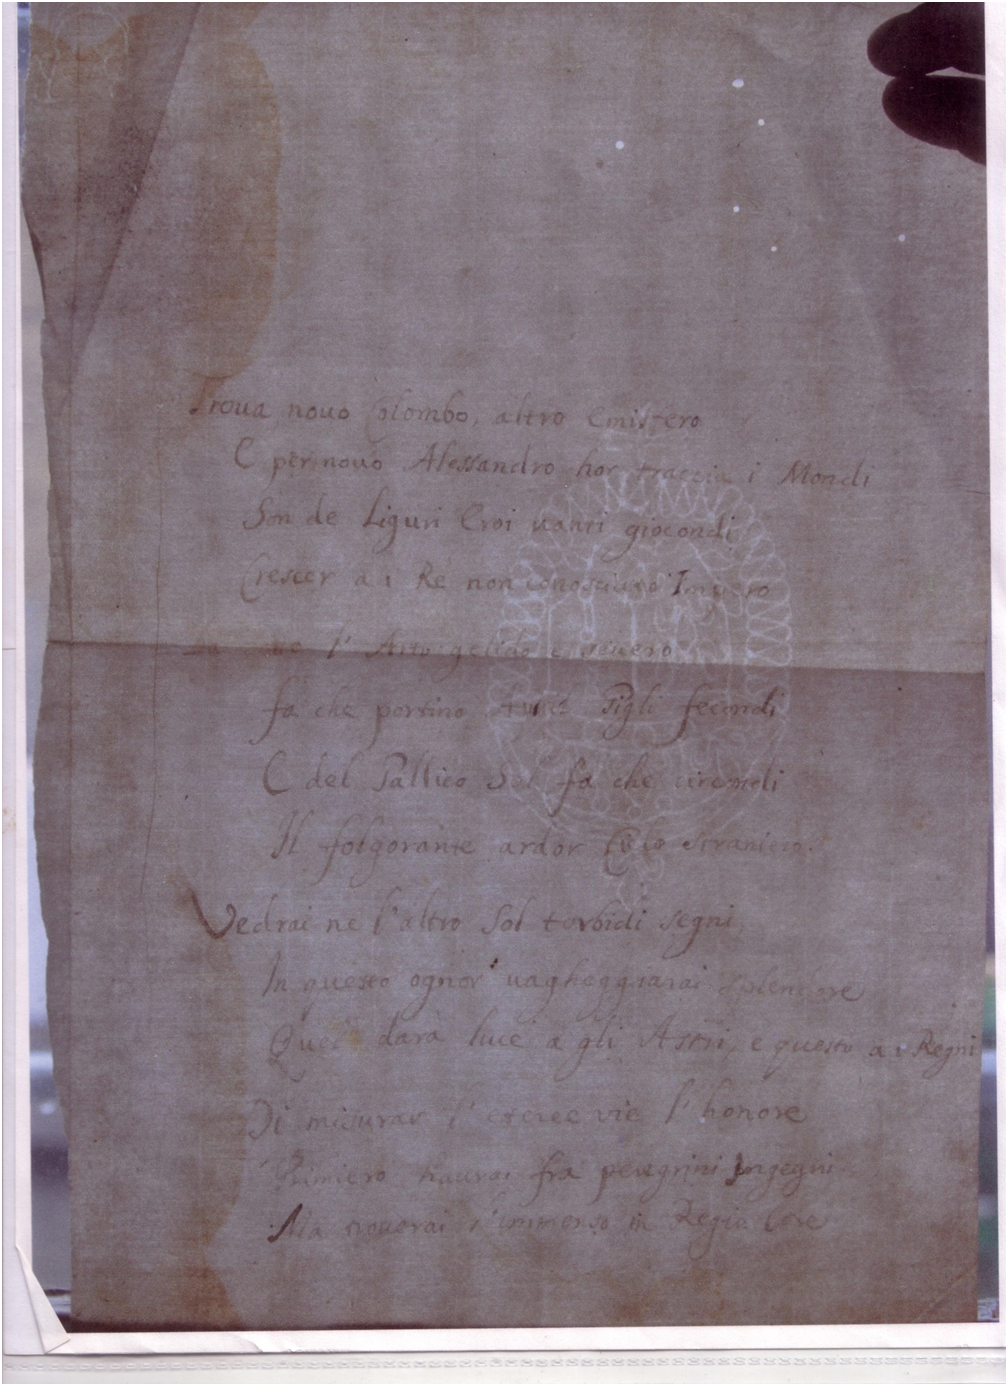 Troua nouo Colombo, altro Emisfero
E per nouo Alessandro hor traccia i Mondi
Son de Liguri Eroi uanti giocondi
Crescer a i Rè non conosciuto Impero
l'Arto gelido e seuero
fa che portino Gigli fecondi
E del Gallico Sol fa che circondi
Il folgorante ardor Cielo straniero.
Vedrai ne l'altro Sol torbidi segni
In questo ognor uagheggiarai splendore
Quel darà luce a gli Astri, e questo a i Regni
Di misurar l'eteree vie l'honore
Primiero haurai fra peregrini Ingegni
Ma trouerai l'immenso in Regia Core